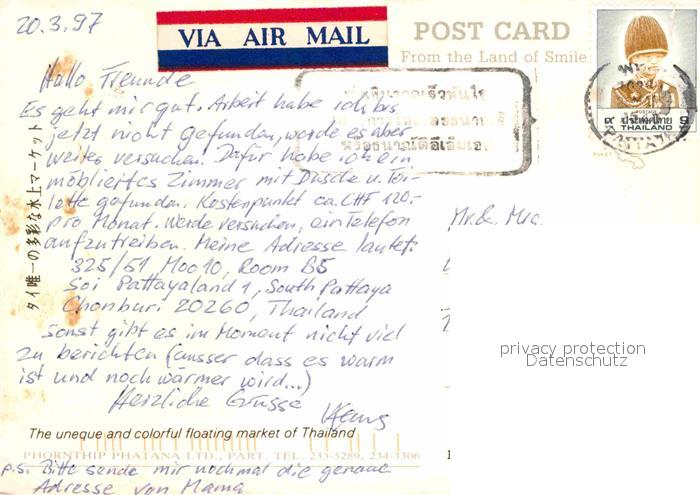 20.3.97
VIA AIR MAIL
POST CARD
From the Land of Smile
ประเทศไทย
THAILAND
POSTAGE
๙ 9
Hallo Freunde
Es geht mir gut. Arbeit habe ich bis
jetzt nicht gefunden, werde es aber
weiter versuchen. Dafür habe ich ein
möbliertes Zimmer mit Dusche u. Toi-
lette gefunden. Kostenpunkt ca. CHF 120.-
pro Monat. Werde versuchen, ein Telefon
aufzutreiben. Meine Adresse lautet:
325/51, Moo 10, Room B5
Soi Pattayaland 1, South Pattaya
Chonburi 20260, Thailand
Sonst gibt es im Moment nicht viel
zu berichten (ausser dass es warm
ist und noch wärmer wird...)
Herzliche Grüsse
タイ唯一の多彩な水上マーケット
Mr. & Mrs.
privacy protection
Datenschutz
The uneque and colorful floating market of Thailand
PHORNTHIP PHATANA LTD., PART. TEL. 233-5289, 234-3306
p.s. Bitte sende mir nochmal die genaue
Adresse von Mama